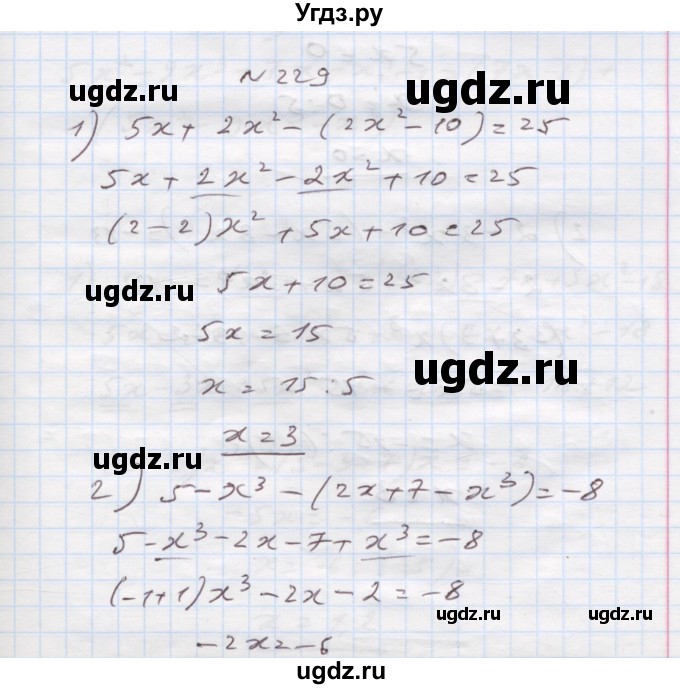 Угдз.ру
ugdz.ru
№ 229
1) 5x + 2x² - (2x² - 10) = 25
5x + 2x² - 2x² + 10 = 25
(2 - 2)x² + 5x + 10 = 25
ugdz.ru
ugdz.ru
5x + 10 = 25
ugdz.ru
5x = 15
x = 15 : 5
ugdz.ru
x = 3
2) 5 - x³ - (2x + 7 - x³) = -8
5 - x³ - 2x - 7 + x³ = -8
(-1 + 1)x³ - 2x - 2 = -8
ugdz.ru
ugdz.ru
-2x = -6
ugdz.ru